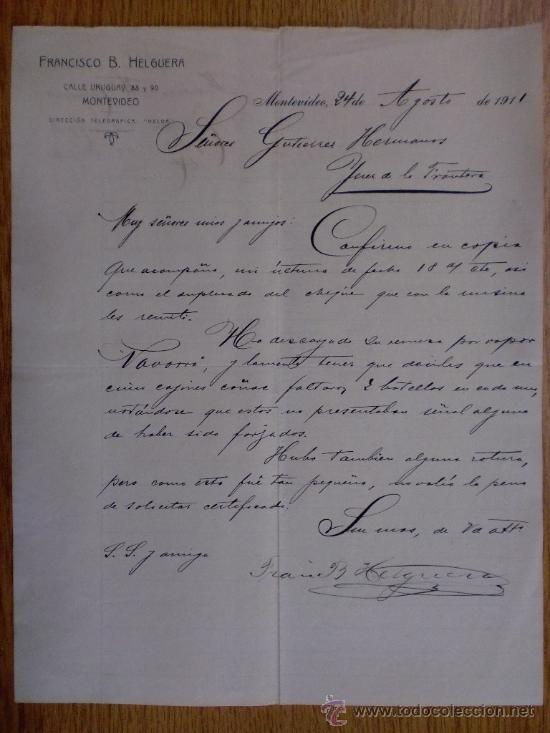 FRANCISCO B. HELGUERA
CALLE URUGUAY, 88 y 90
MONTEVIDEO
DIRECCIÓN TELEGRÁFICA "HELGA"
Montevideo, 24 de Agosto de 1911
Señores Gutierrez Hermanos
Jerez de la Frontera
Muy señores mios y amigos:
Confirmo en copia
que acompaño, mi última de fecha 18 del cte, asi
como el duplicado del cheque que con la misma
les remiti.
Ha descargado su remesa por vapor
"Navarra", y lamento tener que decirles que en
cien cajones coñac faltaron 2 botellas en cada uno,
notándose que estos no presentaban señal alguna
de haber sido forzados.
Hubo tambien alguna rotura,
pero como esta fué tan pequeña, no valió la pena
de solicitar certificado.
Sin mas, de Vds atto
S. S. y amigo
Franco B Helguera
todocoleccion
www.todocoleccion.net